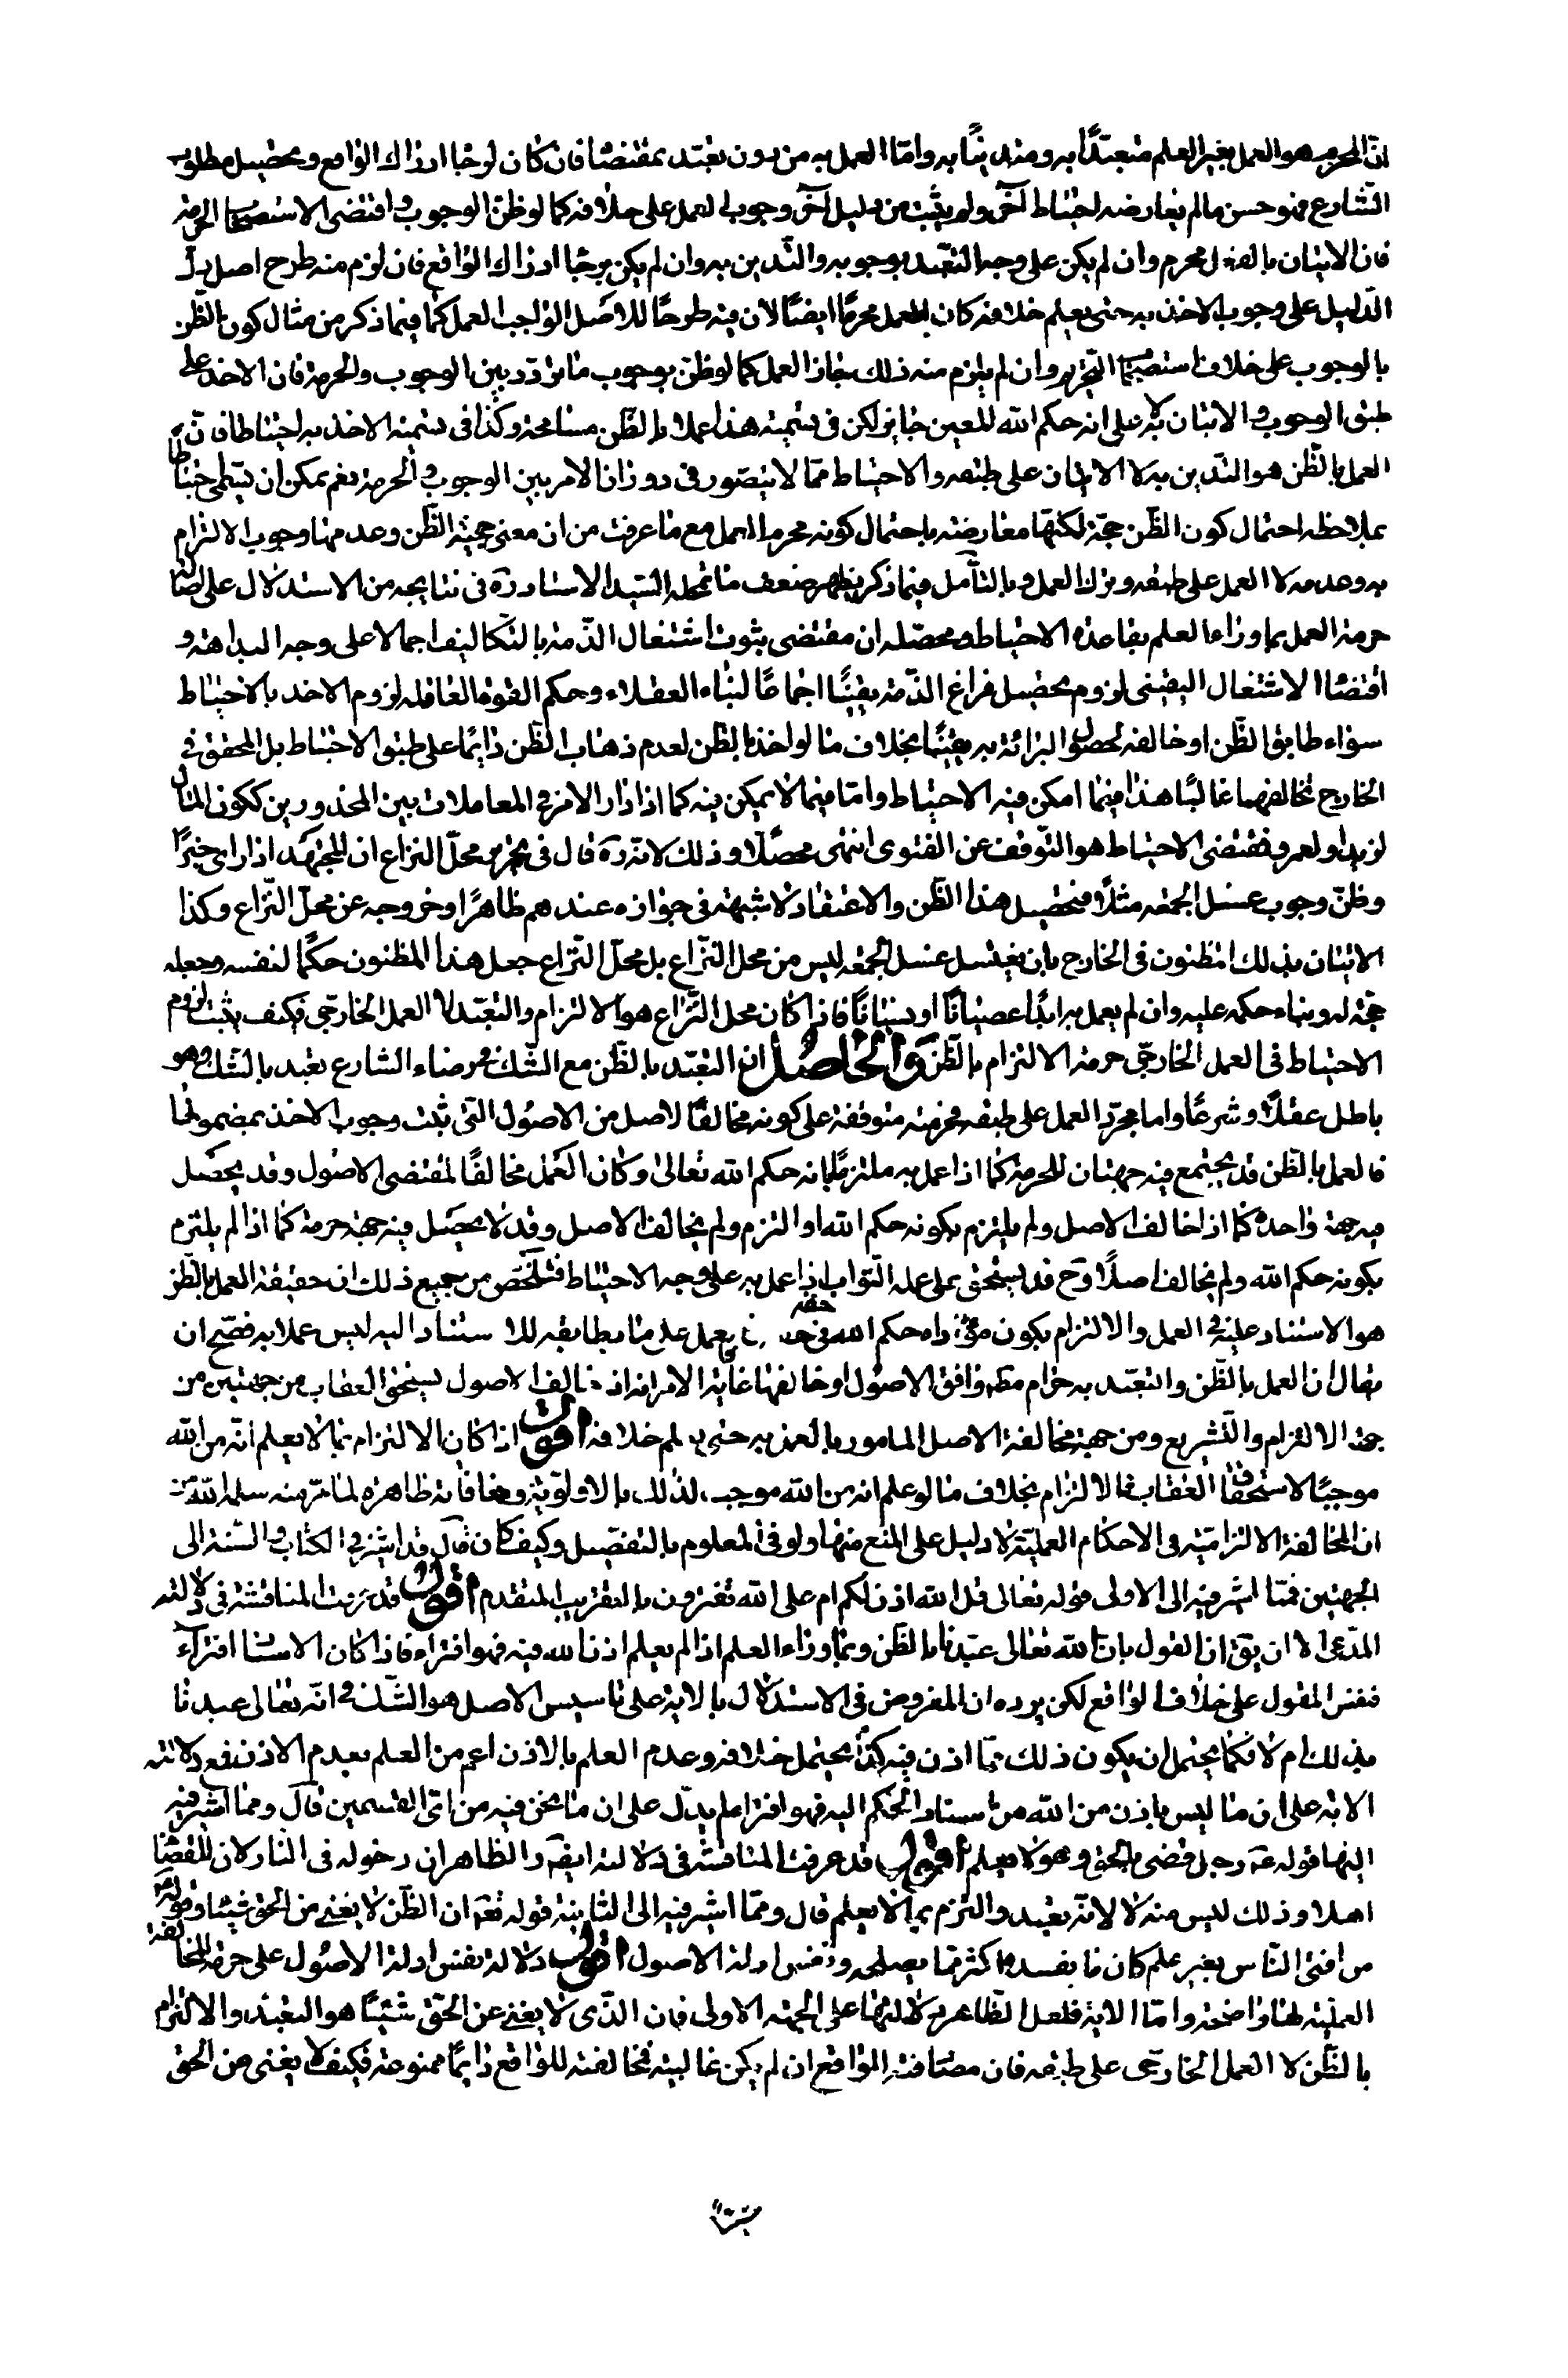 ان المحرم هو العمل بغير العلم متعبّدًا به ومتدينًا به وامّا العمل به من دون تعبّد بمقتضاه فان كان لرجاء ادراك الواقع وتحصيل مطلوب
الشارع فهو حسن ما لم يعارضه احتياط آخر ولم يثبت من دليل آخر وجوب العمل على خلافه كما لو ظنّ الوجوب واقتضى الاستصحاب الحرمة
فان الاتيان بالفعل محرم وان لم يكن على وجه التعبّد بوجوبه والتّدين به وان لم يكن برجاء ادراك الواقع فان لزم منه طرح اصل دلّ
الدّليل على وجوب الاخذ به حتى يعلم خلافه كان العمل محرمًا ايضًا لان فيه طرحًا للاصل الواجب العمل كما فيما ذكر من مثال كون الظّن
بالوجوب على خلاف استصحاب التحريم وان لم يلزم منه ذلك جاز العمل كما لو ظنّ بوجوب ما تردّد بين الوجوب والحرمة فان الاخذ على
طبق الوجوب والاتيان به لا على انه حكم الله المعين جايز ولكن فى تسمية هذا عملا بالظّن مسامحة وكذا فى تسمية الاخذ به احتياطا فان
العمل بالظّن هو التدين به لا الاتيان على طبقه والاحتياط ممّا لا يتصور فى دوران الامر بين الوجوب والحرمة نعم يمكن ان يسمّى احتياطًا
بملاحظة احتمال كون الظّن حجّة لكنّها معارضة باحتمال كونه محرم العمل مع ما عرفت من ان معنى حجية الظّن وعدمها وجوب الالتزام
به وعدمه لا العمل على طبقه وترك العمل وبالتأمل فيما ذكر يظهر ضعف ما تمحله السّيد الاستاد ره فى نتايجه من الاستدلال على اصالة
حرمة العمل بما وراء العلم بقاعدة الاحتياط ومحصّله ان مقتضى ثبوت اشتغال الذّمة بالتكاليف اجمالا على وجه البداهة و
اقتضاء الاشتغال اليقينى لزوم تحصيل فراغ الذّمة يقينًا اجماعًا لبناء العقلاء وحكم القوة العاقلة لزوم الاخذ بالاحتياط
سواء طابق الظّن او خالفه لحصول البرائة به يقينًا بخلاف ما لو اخذ بالظّن لعدم ذهاب الظّن دائمًا على طبق الاحتياط بل المحقق فى
الخارج تخالفهما غالبًا هذا فيما امكن فيه الاحتياط وامّا فيما لا يمكن فيه كما اذا دار الامر فى المعاملات بين المحذورين ككون المال
لزيد او لعمرو فمقتضى الاحتياط هو التّوقف عن الفتوى انتهى محصّلًا وذلك لانّه ره قال فى تحرير محلّ النزاع ان المجتهد اذا راى خبرًا
وظنّ وجوب غسل الجمعة مثلًا فتحصيل هذا الظّن والاعتقاد لا شبهة فى جوازه عندهم ظاهرًا وخروجه عن محلّ النّزاع وكذا
الاتيان بذلك المظنون فى الخارج بان يغتسل غسل الجمعة ليس من محل النّزاع بل محلّ النّزاع جعل هذا المظنون حكمًا لنفسه وجعله
حجّة له وبناء حكمه عليه وان لم يعمل به ابدًا عصيانًا او نسيانًا فاذا كان محل النّزاع هو الالتزام والتعبّد لا العمل الخارجى فكيف يثبت لزوم
الاحتياط فى العمل الخارجى حرمة الالتزام بالظّن والحاصل ان التعبّد بالظّن مع الشّك فى رضاء الشارع تعبد بالشك وهو
باطل عقلًا وشرعًا واما مجرّد العمل على طبقه فحرمته متوقفة على كونه مخالفًا لاصل من الاصول التى ثبت وجوب الاخذ بمضمونها
فالعمل بالظّن قد يجتمع فيه جهتان للحرمة كما اذا عمل به ملتزمًا بانه حكم الله تعالى وكان العمل مخالفًا لمقتضى الاصول وقد يحصل
فيه جهة واحدة كما اذا خالف الاصل ولم يلتزم بكونه حكم الله او التزم ولم يخالف الاصل وقد لا يحصل فيه جهة حرمة كما اذا لم يلتزم
بكونه حكم الله ولم يخالف اصلًا وح قد يستحق على عمله الثّواب اذا عمل به على وجه الاحتياط فتلخّص من جميع ذلك ان حقيقة العمل بالظّن
هو الاستناد عليه فى العمل والالتزام بكون مؤداه حكم الله فى حقه فالعمل على ما يطابقه بلا استناد اليه ليس عملا به فصحّ ان
يقال ان العمل بالظّن والتعبّد به حرام مطلقا وافق الاصول او خالفها غاية الامر انه اذا خالف الاصول يستحق العقاب من جهتين من
جهة الالتزام والتشريع ومن جهة مخالفة الاصل المامور بالعمل به حتى يعلم خلافه اقول اذا كان الالتزام بما لا يعلم انّه من الله
موجبًا لاستحقاق العقاب فالالتزام بخلاف ما لو علم انه من الله موجب لذلك بالاولوية ومنافاته ظاهرة لما مرّ منه سلمه الله من
ان المخالفة الالتزامية فى الاحكام العملية لا دليل على المنع منها ولو فى المعلوم بالتفصيل وكيف كان قال قد اشير فى الكتاب والسّنة الى
الجهتين فممّا اشير فيه الى الاولى قوله تعالى قل الله اذن لكم ام على الله تفترون بالتقريب المتقدم اقول قد عرفت المناقشة فى دلالته
المدّعى الا ان يقّ ان القول بان الله تعالى عبّدنا بالظّن وبما وراء العلم اذا لم يعلم اذن الله فيه فهو افتراء فاذا كان الاسناد افتراء
فنفس المقول على خلاف الواقع لكن يرده ان المفروض فى الاستدلال بالاية على تاسيس الاصل هو الشّك فى انّه تعالى عبدنا
بذلك ام لا فكما يحتمل ان يكون ذلك ممّا اذن فيه كذا يحتمل خلافه وعدم العلم بالاذن اعم من العلم بعدم الاذن فمع دلالته
الاية على ان ما ليس باذن من الله من اسناد الحكم اليه فهو افتراء لم يدلّ على ان ما نحن فيه من اىّ القسمين قال وممّا اشير فيه
اليها قوله ع رجل قضى بالحق وهو لا يعلم اقول قد عرفت المناقشة فى دلالته ايضًا والظاهر ان دخوله فى النار كان للقضاء
اهلا وذلك ليس منه لا لانّه تعبد والتزم بما لا يعلم قال وممّا اشير فيه الى الثانية قوله تعالى ان الظّن لا يغنى من الحق شيئا وقوله
من افتى النّاس بغير علم كان ما يفسده اكثر مما يصلحه ونفس ادلة الاصول اقول دلالة نفس ادلة الاصول على حرمة المخالفة
العمليّة لها واضحة وامّا الاية فلعل الظّاهر دلالتها على الجهة الاولى فان الذّى لا يغنى عن الحق شيئًا هو التعبّد والالتزام
بالظّن لا العمل الخارجى على طبقه فان مصادفته الواقع ان لم يكن غالبية فمخالفته للواقع دايمًا ممنوعة فكيف لا يغنى من الحق